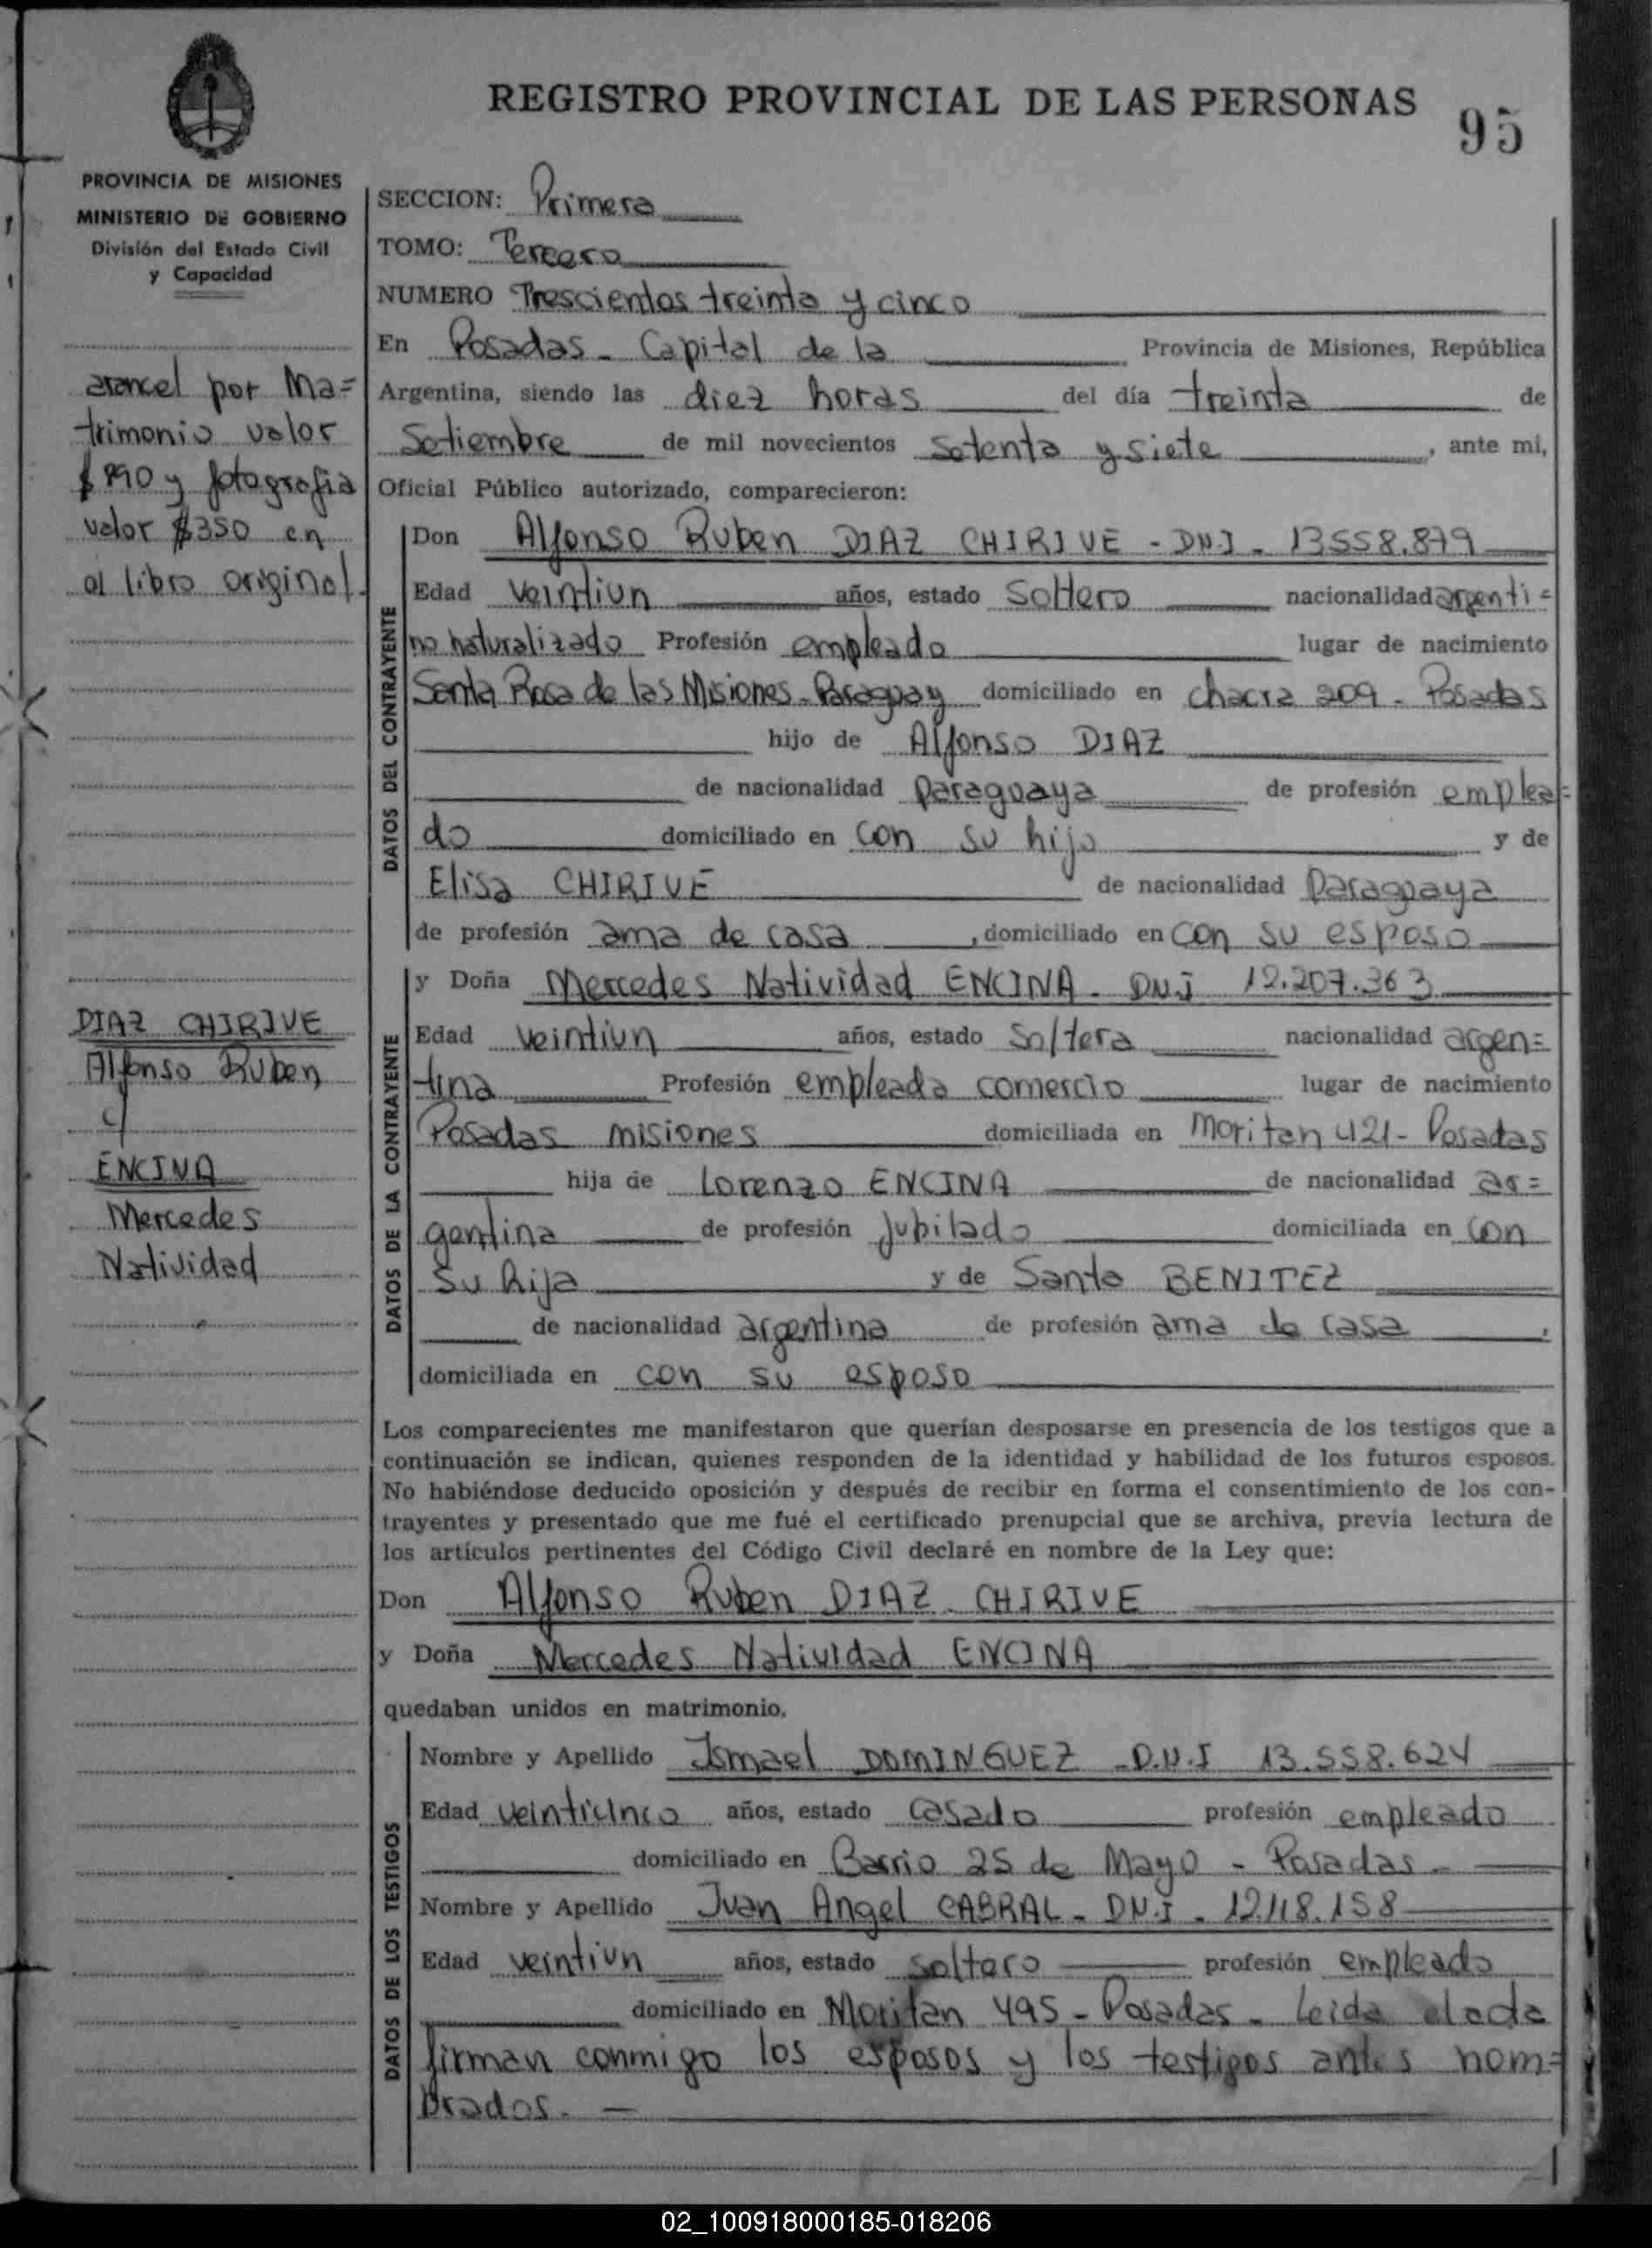 REGISTRO PROVINCIAL DE LAS PERSONAS
95
PROVINCIA DE MISIONES
MINISTERIO DE GOBIERNO
División del Estado Civil
y Capacidad
arancel por Ma=
trimonio valor
$ 890 y fotografia
valor $350 en
el libro original.
DIAZ CHIRIVE
Alfonso Ruben
c/
ENCINA
Mercedes
Natividad
SECCION: Primera
TOMO: Tercero
NUMERO Trescientos treinta y cinco
En Posadas - Capital de la Provincia de Misiones, República
Argentina, siendo las diez horas del día treinta de
Setiembre de mil novecientos Setenta y siete, ante mi,
Oficial Público autorizado, comparecieron:
DATOS DEL CONTRAYENTE
Don Alfonso Ruben DIAZ CHIRIVE - DNI - 13558.879
Edad veintiun años, estado Soltero nacionalidad argenti=
no naturalizado Profesión empleado lugar de nacimiento
Santa Rosa de las Misiones - Paraguay domiciliado en chacra 209 - Posadas
hijo de Alfonso DIAZ
de nacionalidad Paraguaya de profesión emplea=
do domiciliado en con su hijo y de
Elisa CHIRIVE de nacionalidad Paraguaya
de profesión ama de casa, domiciliado en con su esposo
DATOS DE LA CONTRAYENTE
y Doña Mercedes Natividad ENCINA - DNI 12.207.363
Edad veintiun años, estado Soltera nacionalidad argen=
tina Profesión empleada comercio lugar de nacimiento
Posadas misiones domiciliada en Moritan 421 - Posadas
hija de Lorenzo ENCINA de nacionalidad ar=
gentina de profesión Jubilado domiciliada en con
su hija y de Santa BENITEZ
de nacionalidad argentina de profesión ama de casa,
domiciliada en con su esposo
Los comparecientes me manifestaron que querían desposarse en presencia de los testigos que a
continuación se indican, quienes responden de la identidad y habilidad de los futuros esposos.
No habiéndose deducido oposición y después de recibir en forma el consentimiento de los con-
trayentes y presentado que me fué el certificado prenupcial que se archiva, previa lectura de
los artículos pertinentes del Código Civil declaré en nombre de la Ley que:
Don Alfonso Ruben DIAZ CHIRIVE
y Doña Mercedes Natividad ENCINA
quedaban unidos en matrimonio.
DATOS DE LOS TESTIGOS
Nombre y Apellido Ismael DOMINGUEZ - D.N.I 13.558.624
Edad veinticinco años, estado casado profesión empleado
domiciliado en Barrio 25 de Mayo - Posadas -
Nombre y Apellido Juan Angel CABRAL - DN.I - 12.118.158
Edad veintiun años, estado soltero profesión empleado
domiciliado en Moritan 495 - Posadas - Leida el acta
firman conmigo los esposos y los testigos antes nom=
brados. -
02_100918000185-018206